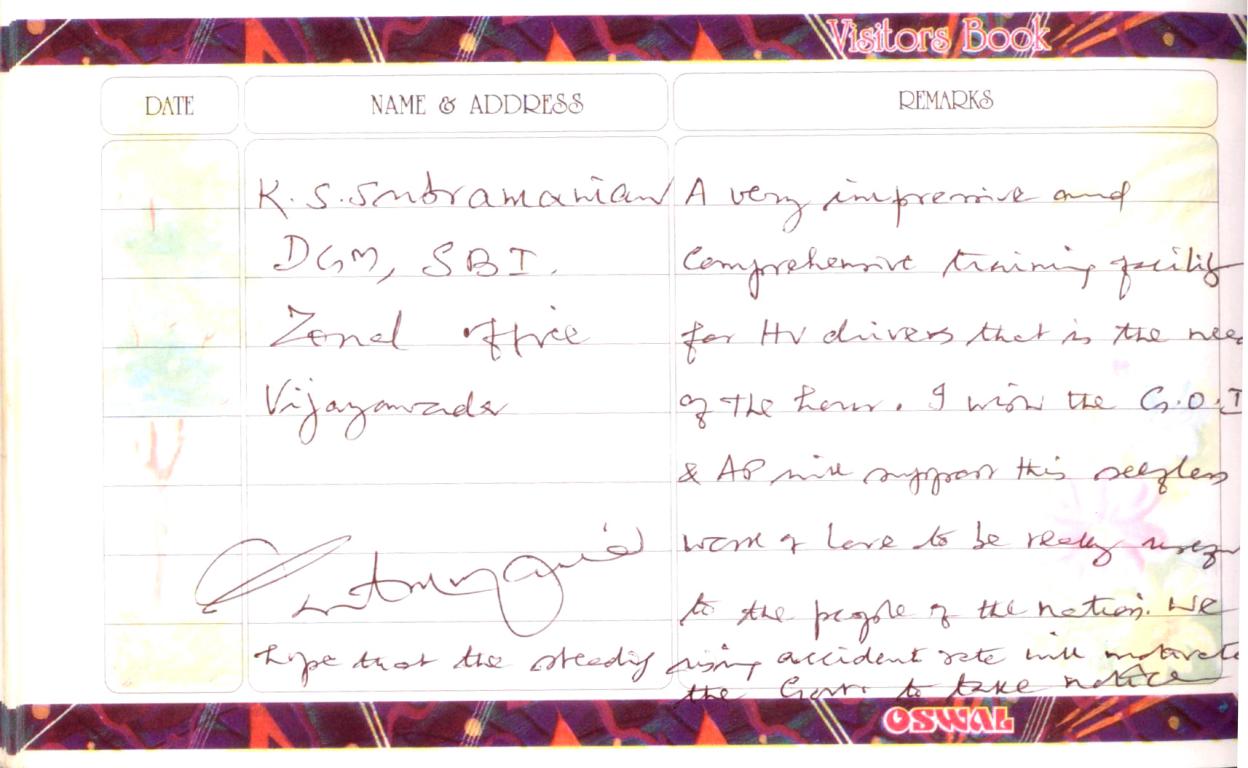 Visitors Book
DATE NAME & ADDRESS REMARKS
K. S. Subramanian
DGM, SBI.
Zonal office
Vijayawada
A very impressive and
Comprehensive training facility
for HV drivers that is the need
of the hour. I wish the G.O.I
& AP will support this selfless
work of love to be really
to the people of the nation. We
hope that the steadily rising accident rate will motivate
the Govt. to take notice
OSWAL